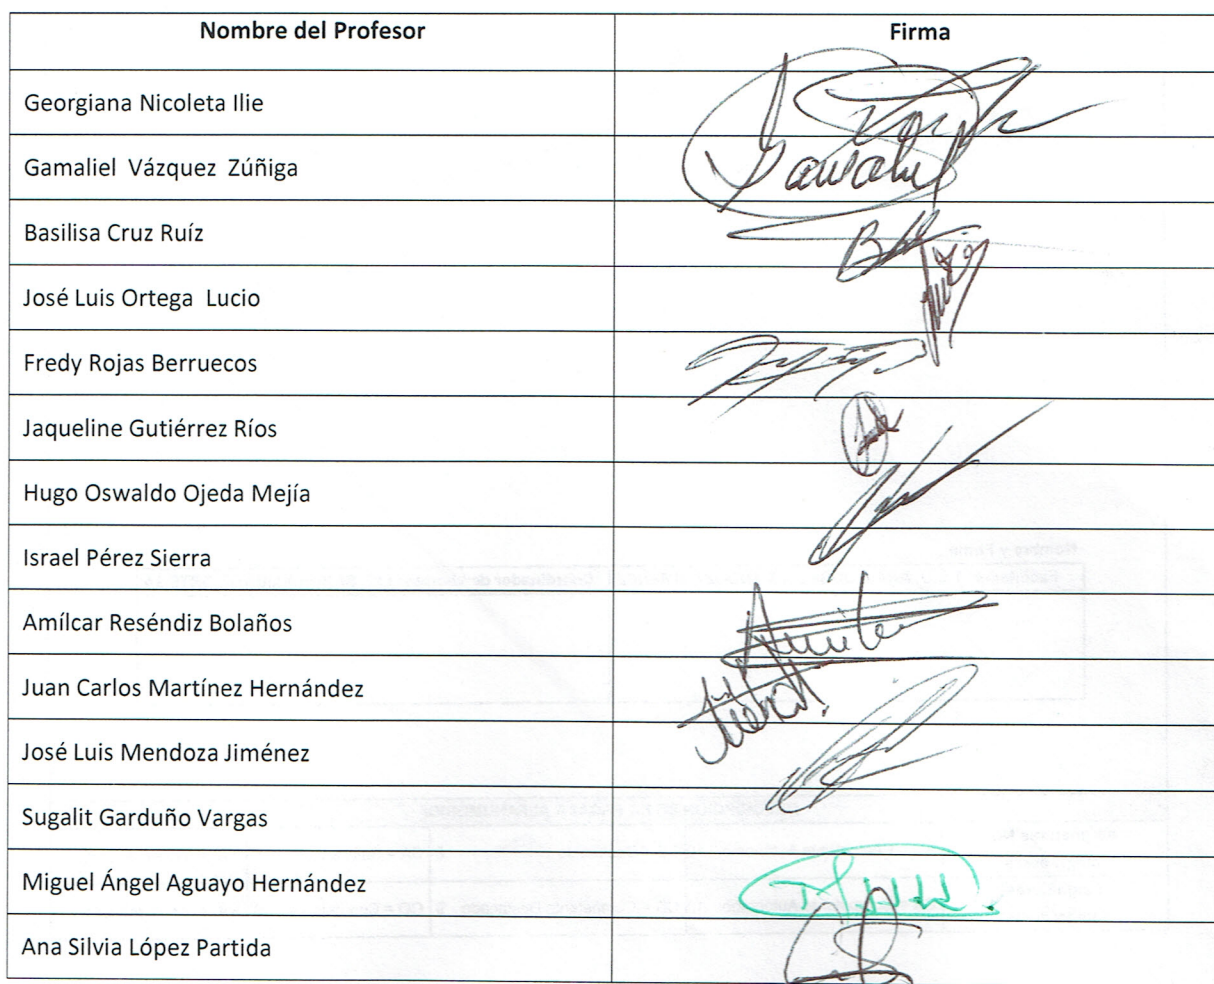 Nombre del Profesor Firma
Georgiana Nicoleta Ilie
Gamaliel Vázquez Zúñiga Gamaliel
Basilisa Cruz Ruíz
José Luis Ortega Lucio
Fredy Rojas Berruecos
Jaqueline Gutiérrez Ríos
Hugo Oswaldo Ojeda Mejía
Israel Pérez Sierra
Amílcar Reséndiz Bolaños
Juan Carlos Martínez Hernández
José Luis Mendoza Jiménez
Sugalit Garduño Vargas
Miguel Ángel Aguayo Hernández
Ana Silvia López Partida